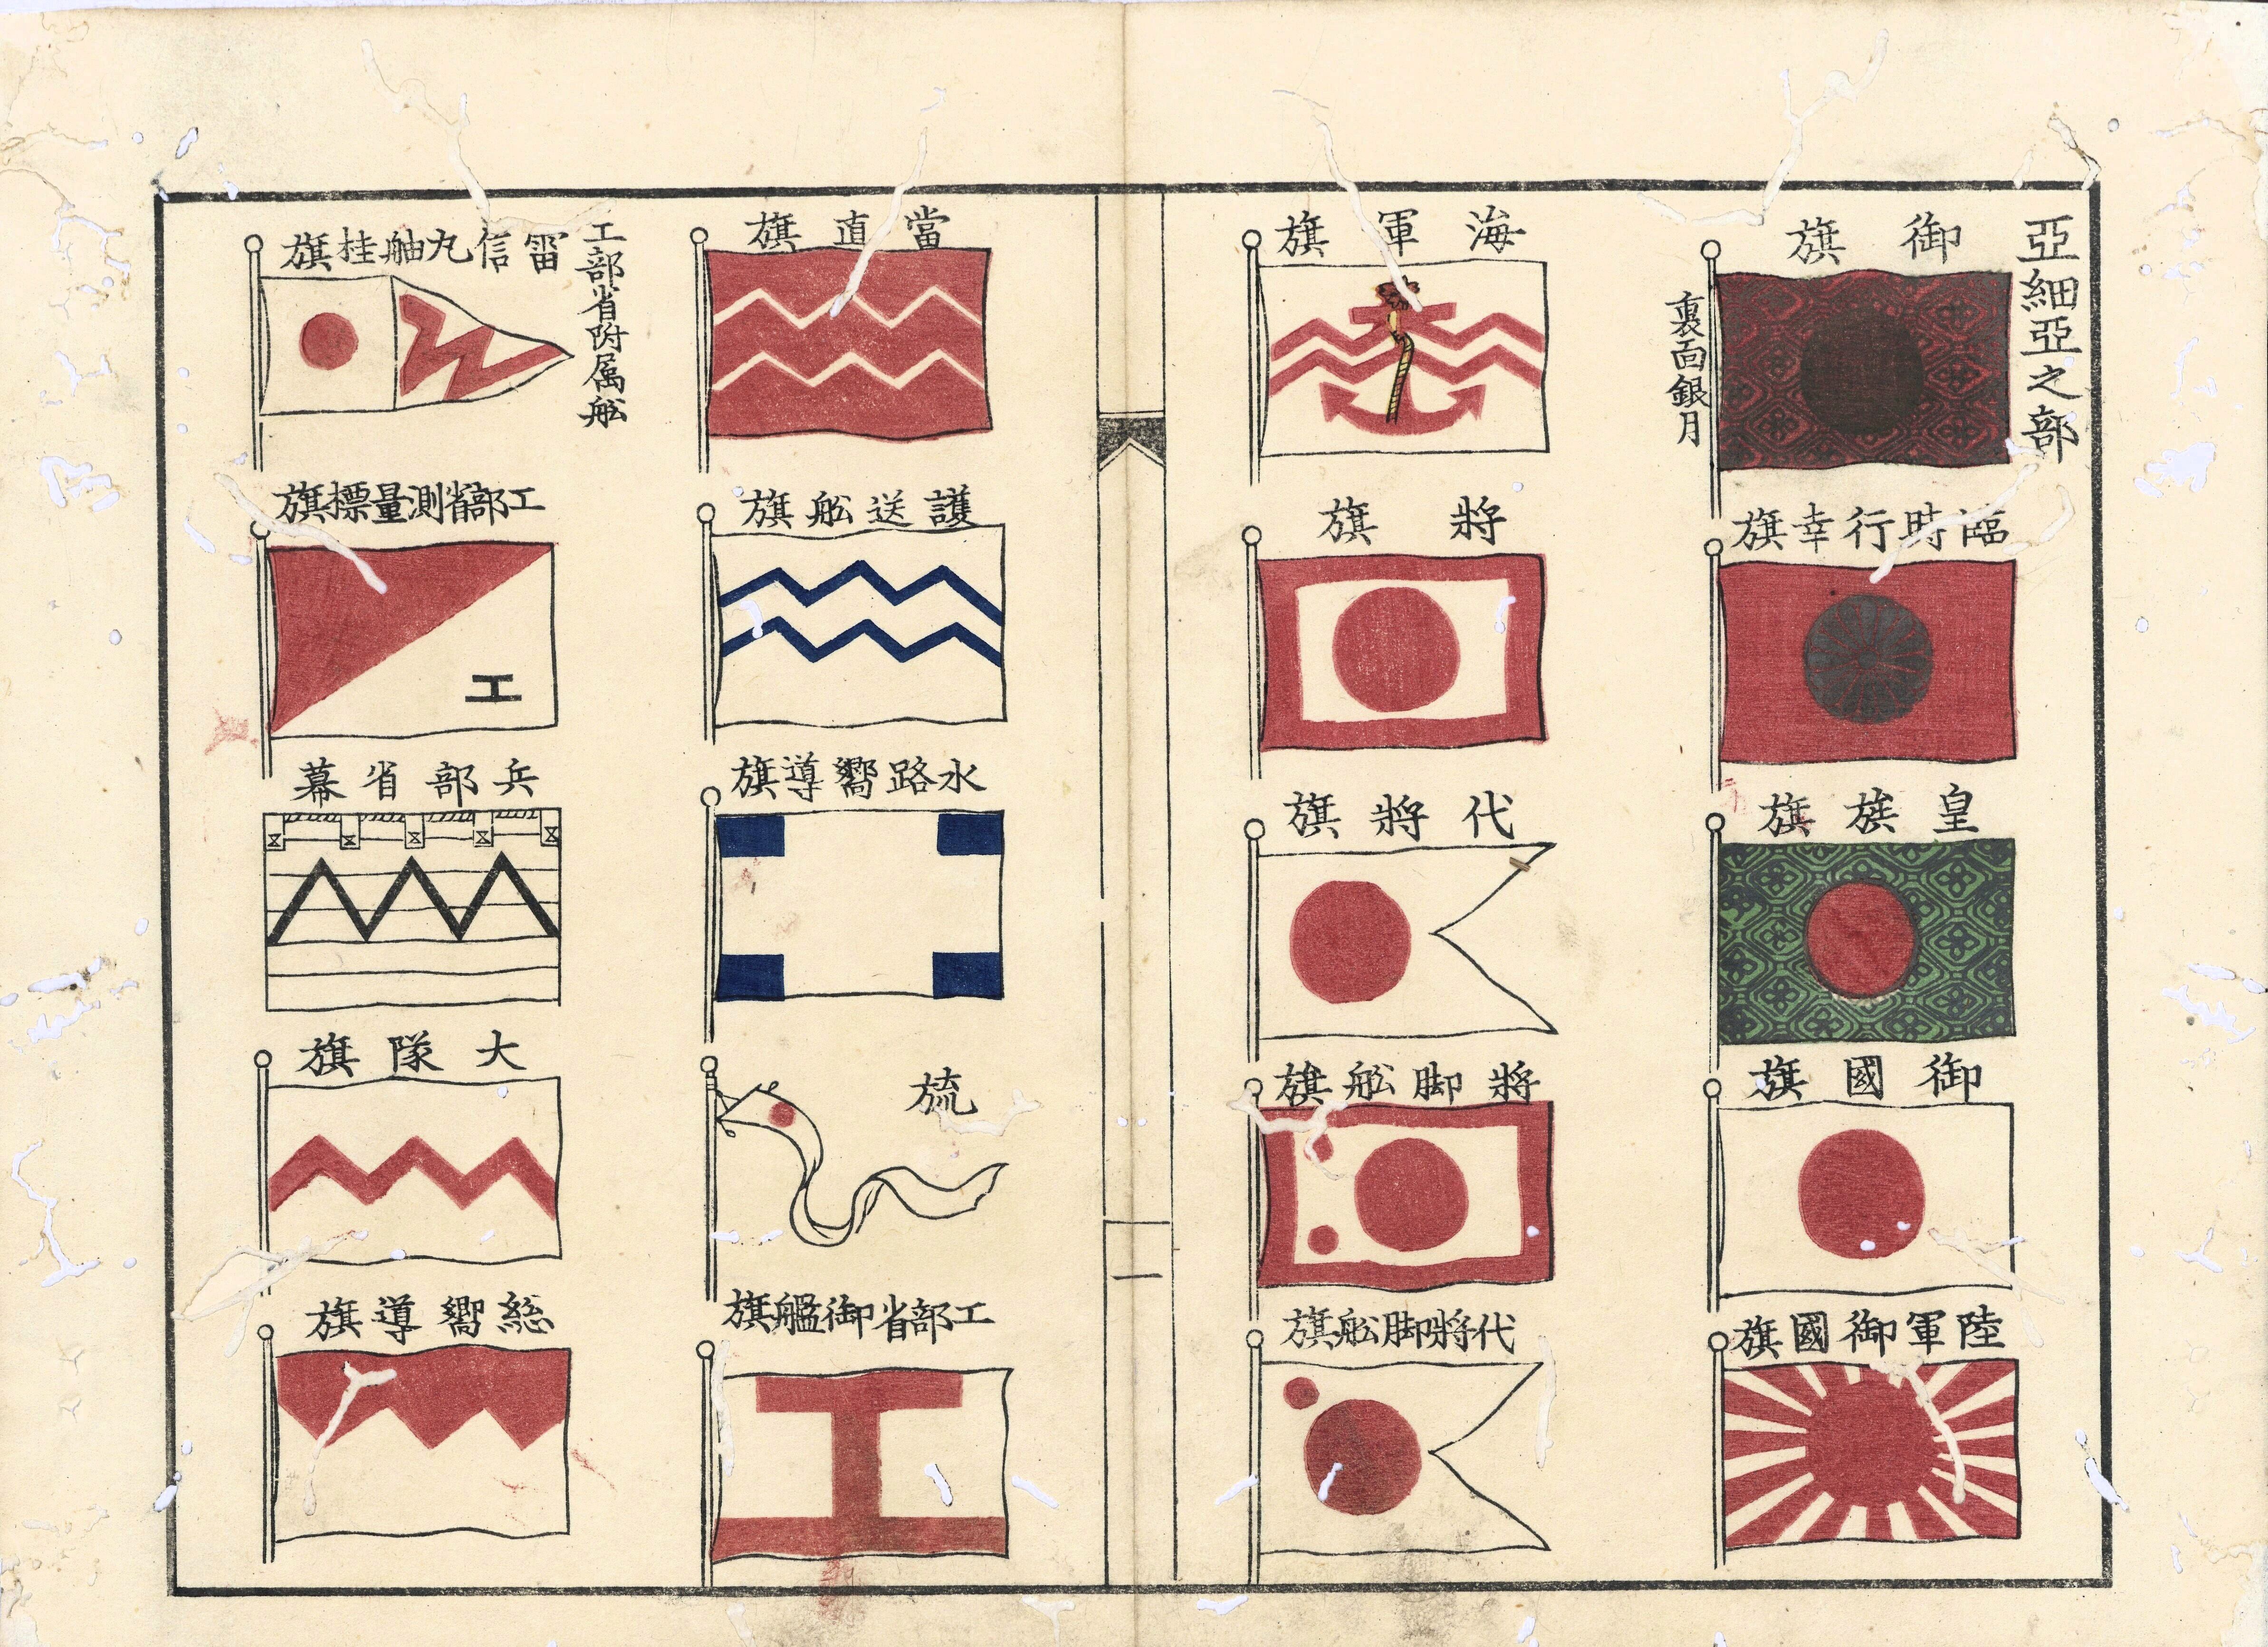 亞細亞之部
御旗
裏面銀月
臨時行幸旗
皇族旗
御國旗
陸軍御國旗
海軍旗
將旗
代將旗
將脚舩旗
代將脚舩旗
當直旗
護送舩旗
水路嚮導旗
旒
工部省御艦旗
工部省附属舩
雷信丸舳桂旗
工部省測量標旗
工
兵部省幕
大隊旗
総嚮導旗
一